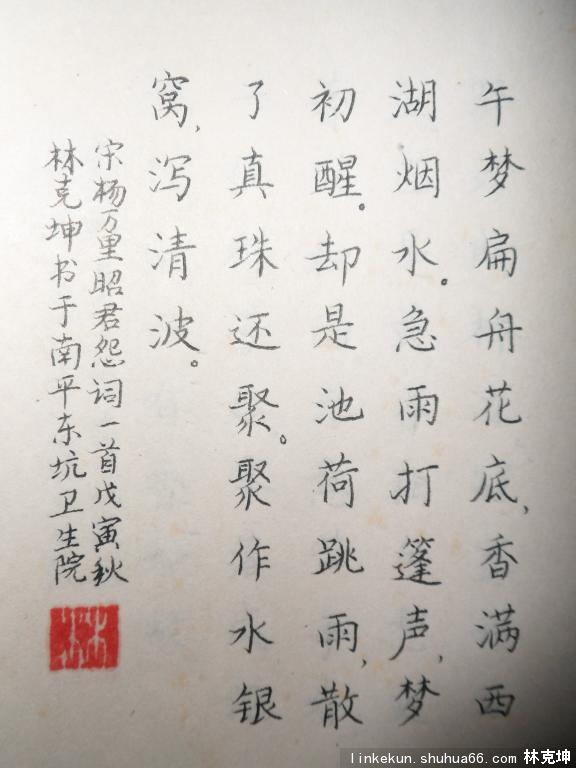 午梦扁舟花底，香满西
湖烟水。急雨打篷声，梦
初醒。却是池荷跳雨，散
了真珠还聚。聚作水银
窝，泻清波。
宋杨万里昭君怨词一首戊寅秋
林克坤书于南平东坑卫生院
林
linkekun.shuhua66.com 林克坤